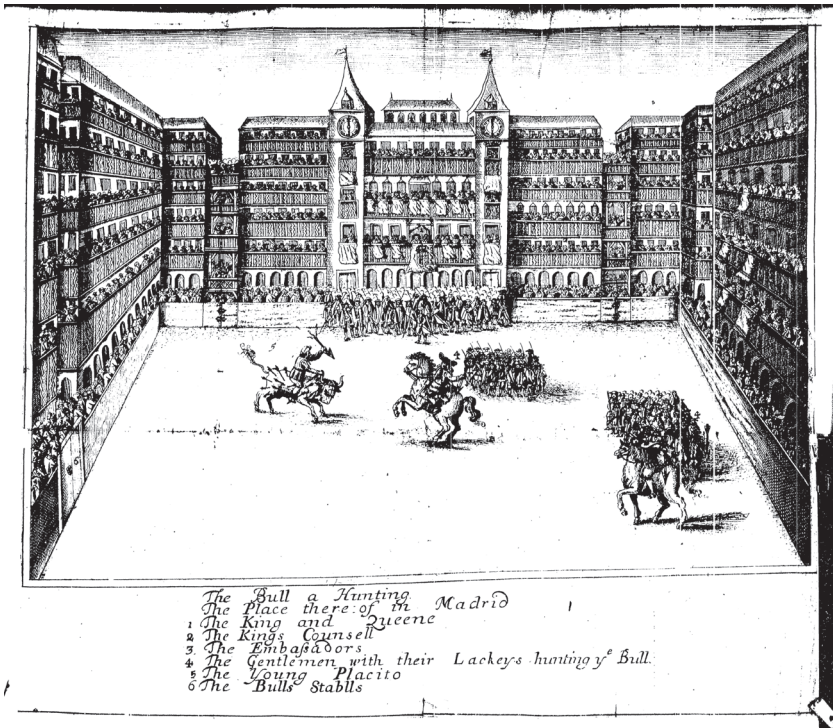 The Bull a Hunting.
The Place there: of in Madrid
1 The King and Queene
2 The Kings Counsell
3. The Embaßadors
4 The Gentlemen with their Lackeys hunting yᵉ Bull.
5 The Young Placito
6 The Bulls Stablls